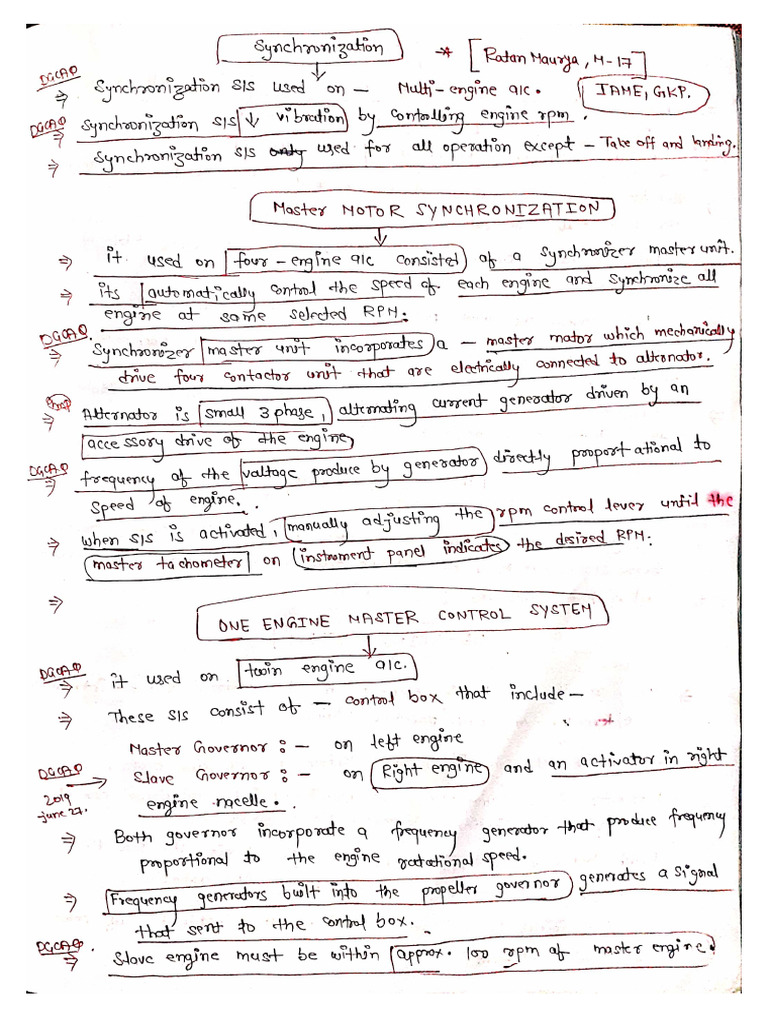 Synchronization
* [Ratan Maurya, M-17]
DGCA Q
⇒ Synchronization S/S used on — Multi-engine a/c.
IAME, GKP.
DGCA Q
⇒ Synchronization S/S ↓ vibration by controlling engine rpm.
⇒ Synchronization S/S only used for all operation except — Take off and landing.
Master MOTOR SYNCHRONIZATION
⇒ it used on four-engine a/c consisted of a synchronizer master unit.
⇒ its automatically control the speed of each engine and synchronize all
engine at same selected RPM.
DGCA Q.
⇒ Synchronizer master unit incorporates a — master motor which mechanically
drive four contactor unit that are electrically connected to alternator.
⇒ Alternator is small 3 phase, alternating current generator driven by an
accessory drive of the engine
DGCA Q
⇒ frequency of the voltage produce by generator directly proportational to
speed of engine.
⇒ when S/S is activated, manually adjusting the rpm control lever until the
master tachometer on instrument panel indicates the desired RPM.
⇒
ONE ENGINE MASTER CONTROL SYSTEM
DGCA Q
⇒ it used on twin engine a/c.
⇒ These S/S consist of — control box that include —
Master Governor :- on left engine
DGCA Q
→ Slave Governor :- on Right engine and an activator in right
2019
June 27.
engine nacelle.
⇒ Both governor incorporate a frequency generator that produce frequency
proportional to the engine rotational speed.
⇒ Frequency generators built into the propeller governor generates a signal
that sent to the control box.
DGCA Q.
⇒ Slave engine must be within approx. 100 rpm of master engine.